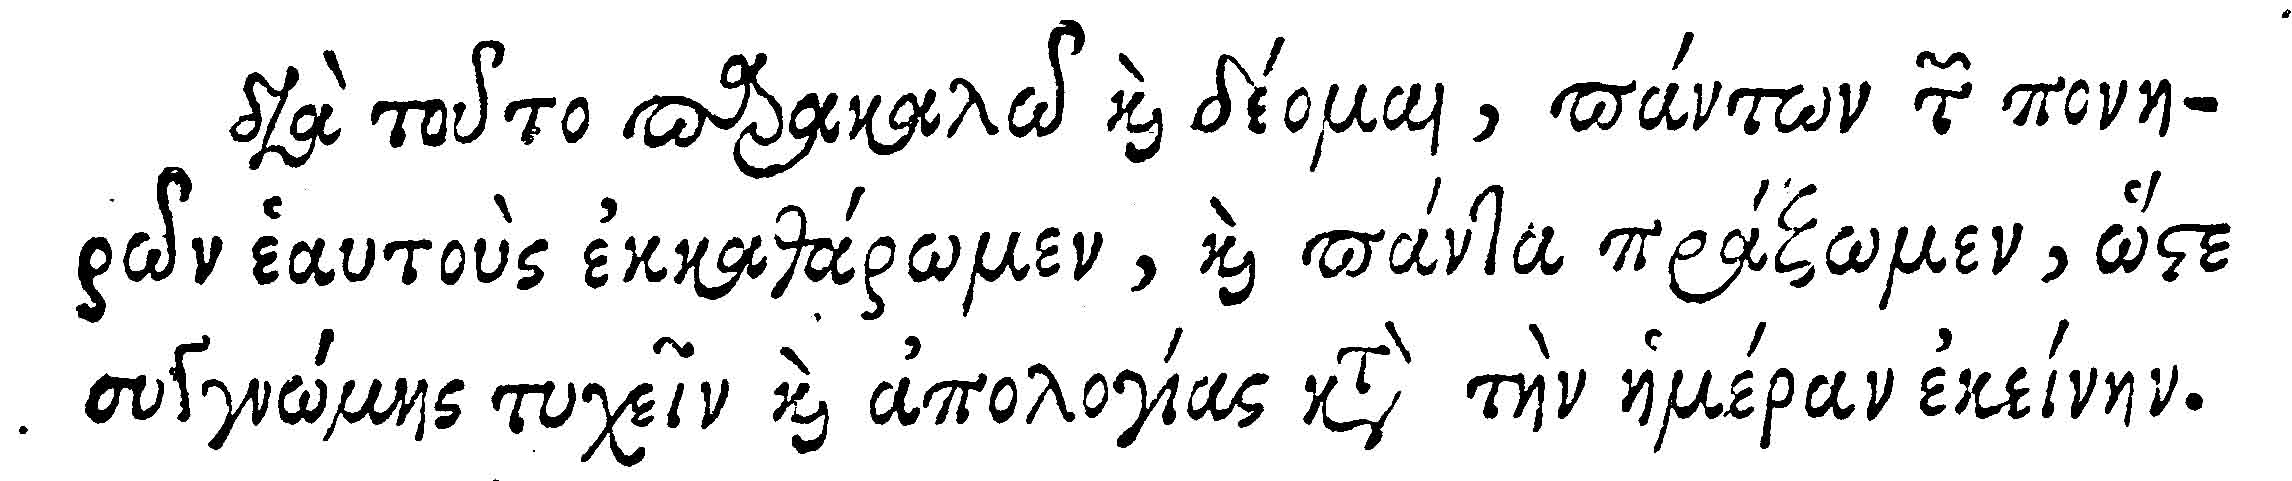 διὰ τοῦτο παρακαλῶ ϗ̀ δέομαι, πάντων τ̃ πονη-
ρῶν ἑαυτοὺς ἐκκαθάρωμεν, ϗ̀ πάντα πράξωμεν, ὥϛε
συγγνώμης τυχεῖν ϗ̀ ἀπολογίας κτ̀ τὴν ἡμέραν ἐκείνην.